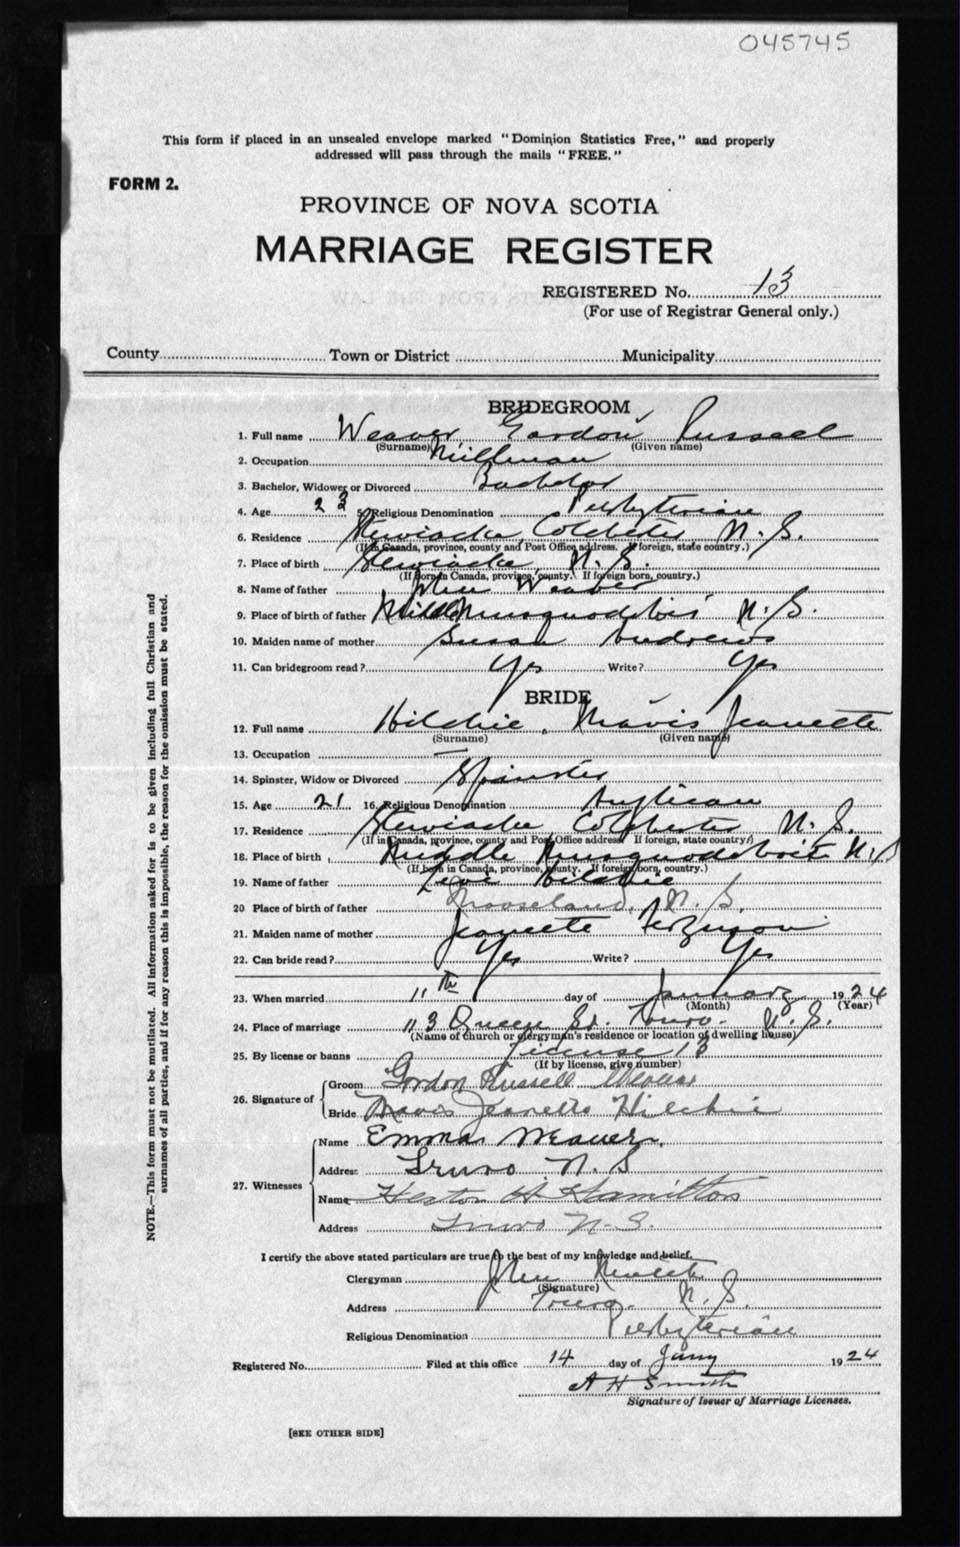 045745
This form if placed in an unsealed envelope marked "Dominion Statistics Free," and properly
addressed will pass through the mails "FREE."
FORM 2.
PROVINCE OF NOVA SCOTIA
MARRIAGE REGISTER
REGISTERED No. 13
(For use of Registrar General only.)
County Town or District Municipality
BRIDEGROOM
1. Full name Weaver, Gordon Russell
(Surname) (Given name)
2. Occupation Millman
3. Bachelor, Widower or Divorced Bachelor
4. Age 23 5. Religious Denomination Presbyterian
6. Residence Stewiacke, Colchester, N.S.
(If in Canada, province, county and Post Office address. If foreign, state country.)
7. Place of birth Stewiacke, N.S.
(If born in Canada, province, county. If foreign born, country.)
8. Name of father John Weaver
9. Place of birth of father Middle Musquodoboit N.S.
10. Maiden name of mother Susan Andrews
11. Can bridegroom read? Yes Write? Yes
BRIDE
12. Full name Hilchie, Mavis Jeanette
(Surname) (Given name)
13. Occupation —
14. Spinster, Widow or Divorced Spinster
15. Age 21 16. Religious Denomination Anglican
17. Residence Stewiacke, Colchester N.S.
(If in Canada, province, county and Post Office address. If foreign, state country.)
18. Place of birth Middle Musquodoboit N.S
(If born in Canada, province, county. If foreign born, country.)
19. Name of father Levi Hilchie
20 Place of birth of father Mooseland, N.S.
21. Maiden name of mother Jeanette Ferguson
22. Can bride read? Yes Write? Yes
23. When married 11th day of January 1924
(Month) (Year)
24. Place of marriage 113 Queen St. Truro. N.S.
(Name of church or clergyman's residence or location of dwelling house)
25. By license or banns License 13
(If by license, give number)
26. Signature of
Groom Gordon Russell Weaver
Bride Mavis Jeanette Hilchie
27. Witnesses
Name Emma Weaver.
Address Truro N.S
Name Hector H Hamilton
Address Truro N.S.
I certify the above stated particulars are true to the best of my knowledge and belief.
Clergyman John
(Signature)
Address Truro. N.S.
Religious Denomination Presbyterian
Registered No. Filed at this office 14 day of Jany 1924
A H Smith
Signature of Issuer of Marriage Licenses.
[SEE OTHER SIDE]
NOTE.—This form must not be mutilated. All information asked for is to be given including full Christian and
surnames of all parties, and if for any reason this is impossible, the reason for the omission must be stated.